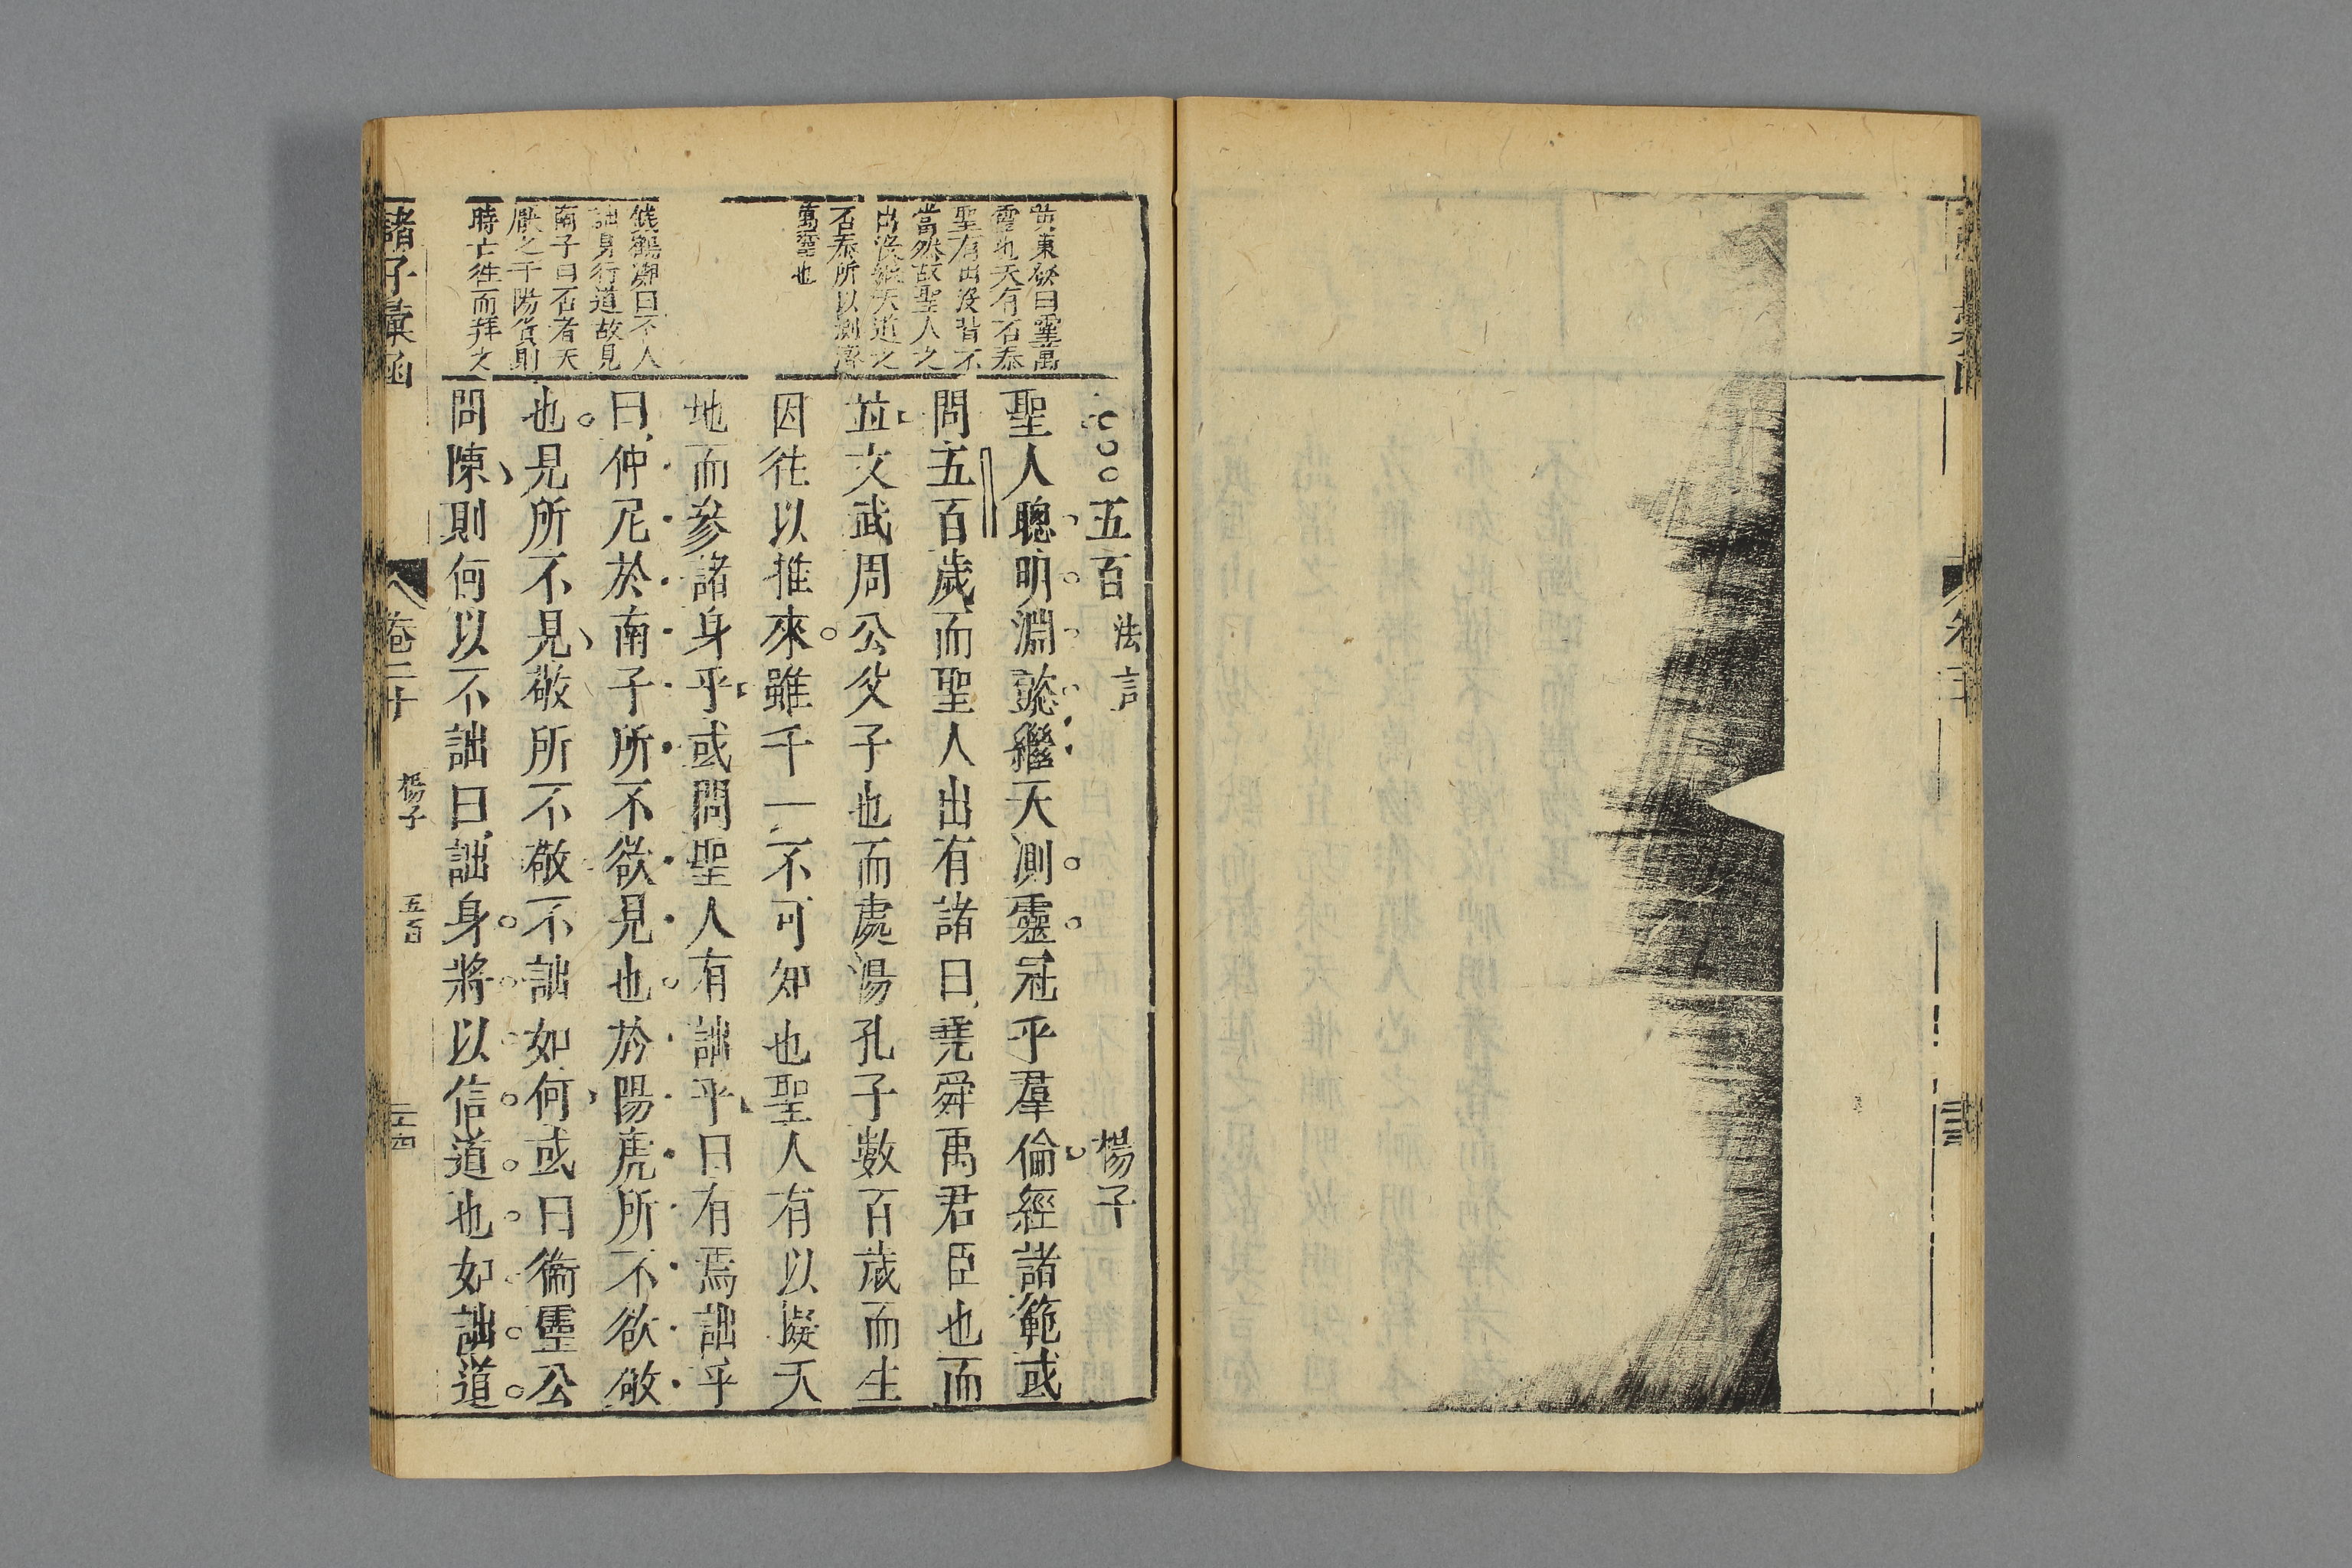 五百 法言 楊子
聖人聰明淵懿繼天測靈冠乎羣倫經諸範或
問五百歲而聖人出有諸曰堯舜禹君臣也而
並文武周公父子也而處湯孔子數百歲而生
因徃以推來雖千一不可知也聖人有以擬天
地而參諸身乎或問聖人有詘乎曰有焉詘乎
曰仲尼於南子所不欲見也於陽虎所不欲敬
也見所不見敬所不敬不詘如何或曰衞靈公
問陳則何以不詘曰詘身將以信道也如詘道
東發曰靈萬
靈也天有否泰
聖有出沒皆不
當然故聖人之
出沒繼天道之
否泰所以測濟
萬靈也
錢鶴灘曰不人
詘身行道故見
南子曰否者天
厭之于陽貨則
時亡徃而拜之
諸子彙函
卷二十
楊子
五百
三十四